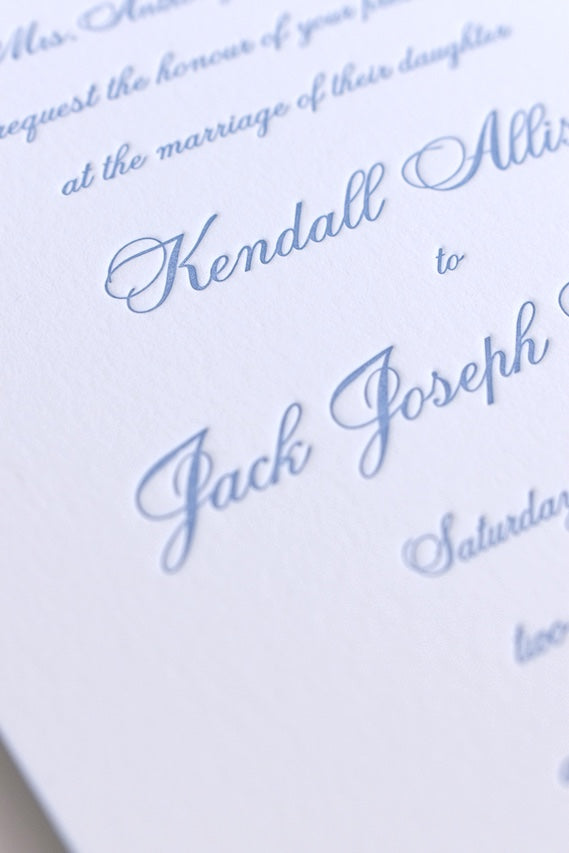 Mrs.
request the honour of your
at the marriage of their daughter
Kendall
to
Jack Joseph
Saturday
two